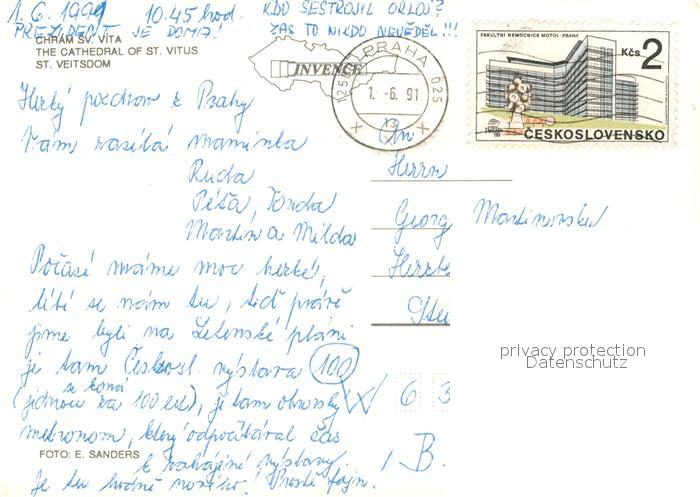 1. 6. 1991 10.45 hod. KDO SESTROJIL ORLOJ?
PREZIDENT JE DOMA! ZAS TO NIKDO NEVĚDĚL!!!
CHRÁM SV. VÍTA
THE CATHEDRAL OF ST. VITUS
ST. VEITSDOM
INVENCE
PRAHA 025
1. -6. 91
13
125
FAKULTNÍ NEMOCNICE MOTOL - PRAHA
Kčs 2
ČESKOSLOVENSKO
Hezký pozdrav z Prahy
Vám zasílá maminka
Ruda
Péťa, Jonda
Martin a Milda
Počasí máme moc hezké,
líbí se nám tu, teď právě
jsme byli na Letenské pláni
je tam Českosl. výstava 100
se koná
(jednou za 100 let), je tam obrovský
metronom, který odpočítával čas
k zahájení výstavy
je tu hodně nového! Prostě fajn.
An
Herrn
Georg
Herzbe
Stu
W 6 3
1B.
FOTO: E. SANDERS
privacy protection
Datenschutz